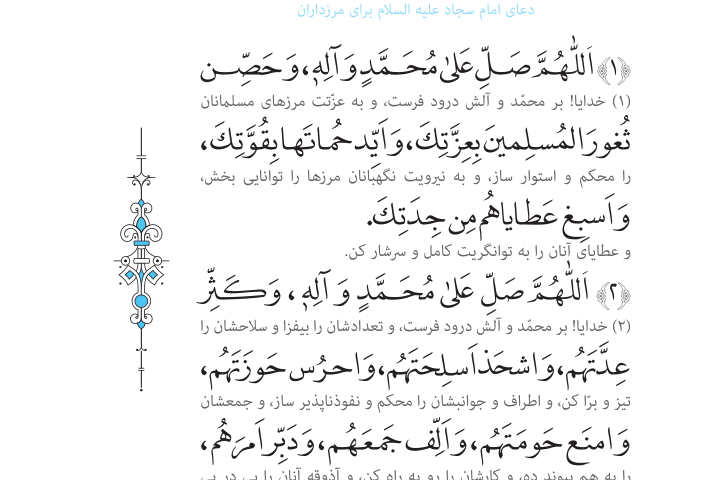 دعای امام سجاد علیه السلام برای مرزداران
﴿۱﴾ اَللّٰهُمَّ صَلِّ عَلىٰ مُحَمَّدٍ وَ آلِهِ، وَ حَصِّن
(۱) خدایا! بر محمّد و آلش درود فرست، و به عزّتت مرزهای مسلمانان
ثُغورَ المُسلِمینَ بِعِزَّتِكَ، وَ اَیِّد حُماتَها بِقُوَّتِكَ،
را محکم و استوار ساز، و به نیرویت نگهبانان مرزها را توانایی بخش،
وَ اَسبِغ عَطایاهُم مِن جِدَتِكَ.
و عطایای آنان را به توانگریت کامل و سرشار کن.
﴿۲﴾ اَللّٰهُمَّ صَلِّ عَلىٰ مُحَمَّدٍ وَ آلِهِ، وَ كَثِّر
(۲) خدایا! بر محمّد و آلش درود فرست، و تعدادشان را بیفزا و سلاحشان را
عِدَّتَهُم، وَ اشحَذ اَسلِحَتَهُم، وَ احرُس حَوزَتَهُم،
تیز و برّا کن، و اطراف و جوانبشان را محکم و نفوذناپذیر ساز، و جمعشان
وَ امنَع حَومَتَهُم، وَ اَلِّف جَمعَهُم، وَ دَبِّر اَمرَهُم،
را به هم پیوند ده، و کارشان را رو به راه کن، و آذوقه آنان را پی در پی